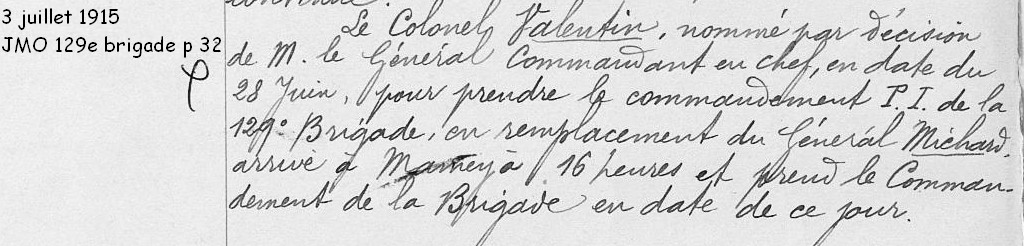 3 juillet 1915
JMO 129e brigade p 32
Le Colonel Valentin, nommé par décision
de M. le Général Commandant en chef, en date du
28 Juin, pour prendre le commandement P.I. de la
129e Brigade, en remplacement du Général Michard,
arrive à Mamey à 16 heures et prend le Comman-
dement de la Brigade en date de ce jour.